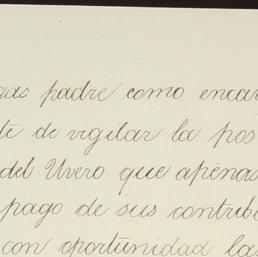 gas padre como encar
te de vigilar la pos
del Uvero que apenas
pago de sus contrib
con oportunidad las